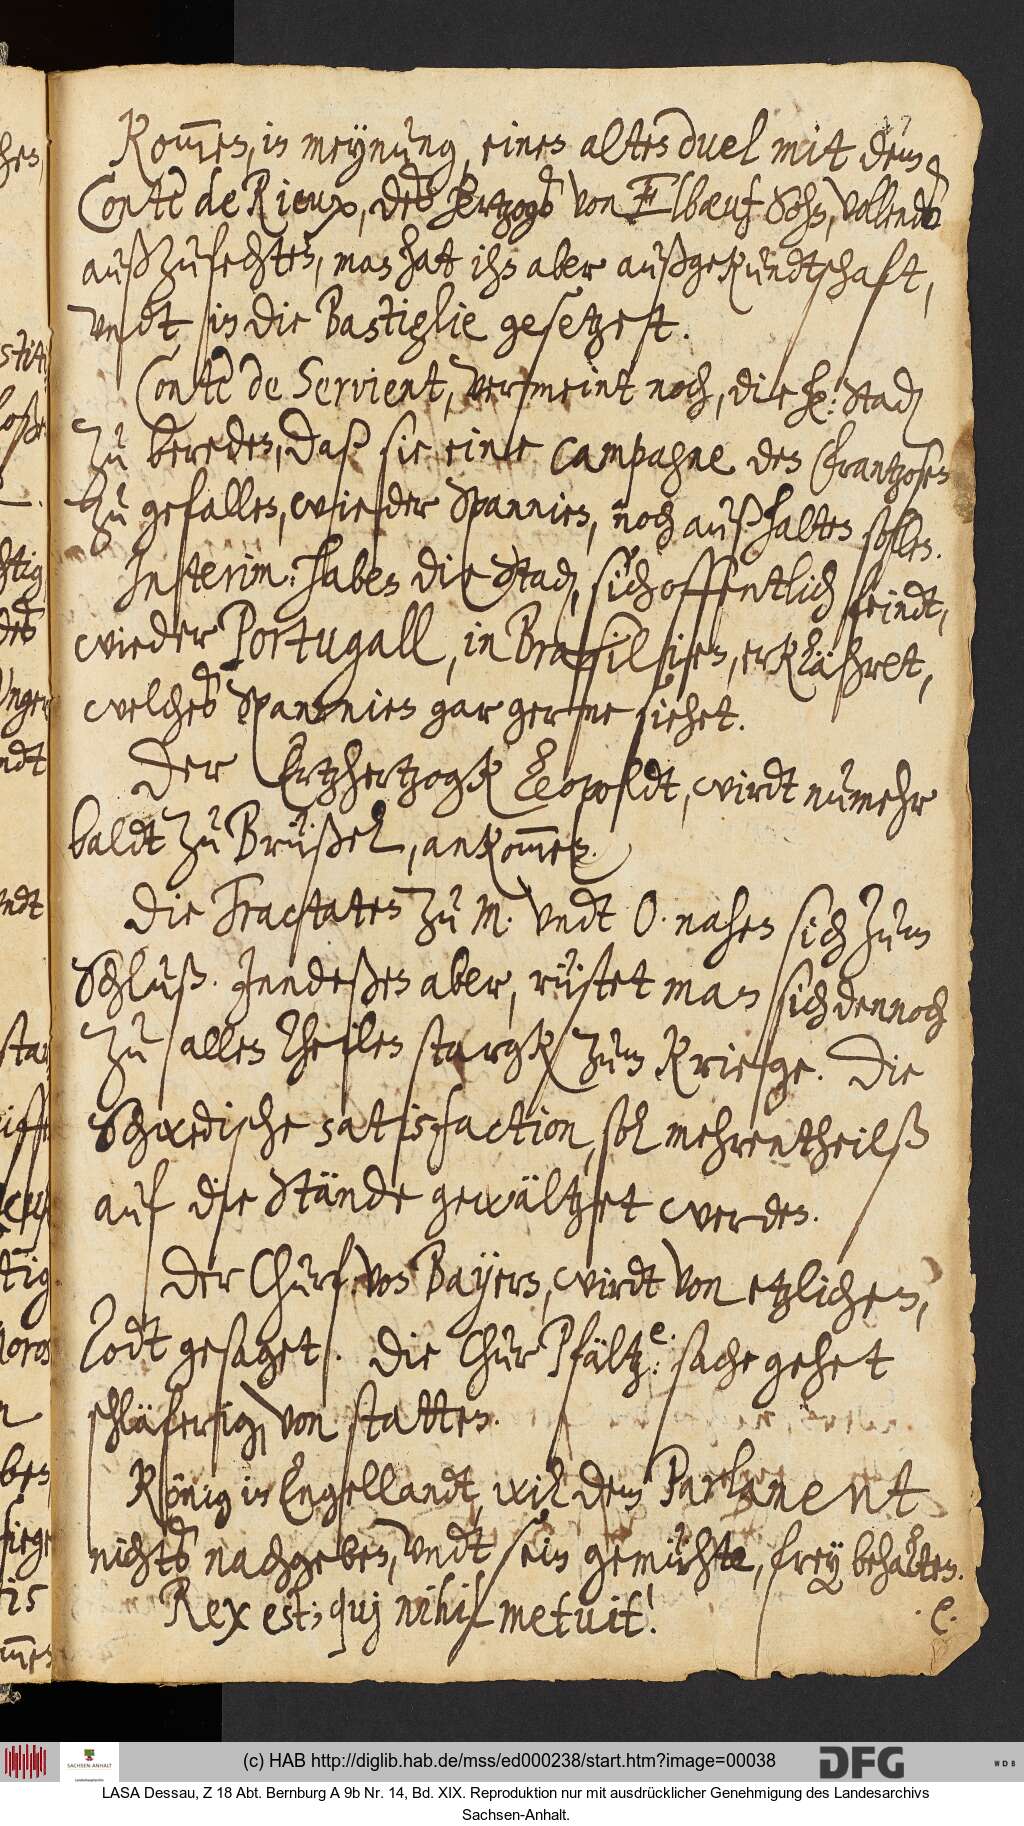 17
Kom̅en, in meynung, einen alten duel mit dem
Conte de Rieux, des hertzogs von Elbœuf Sohn, vollends
außzufechten, man hat ihn aber außgekundtschaft,
undt in die Bastiglie gesetzet.
Conte de Servient, vermeint noch, die H: Stad
zu bereden, daß sie eine campagne den Frantzosen
zu gefallen, wieder Spannien, noch außhalten sollen.
Interim: haben die Stad, sich offentlich feindt,
wieder Portugall, in Brassilien, erklähret,
welches Spannien gar gerne siehet.
Der Ertzhertzogk Leopoldt, wirdt numehr
baldt zu Brüßel, ankom̅en.
Die Tractaten zu M. undt O. nahen sich zum
Schluß. Inndeßen aber, rüstet man sich dennoch
zu allen theilen stargk zum Kriege. Die
Schwedische satisfaction, sol mehrentheilß
auf die Stände gewältzet werden.
Der Churf: von Bayern, wirdt von etzlichen,
Todt gesaget. Die Chur Pfältz:e sache gehet
schläferig, von statten.
König in Engellandt, wil dem Parlament
nichts nachgeben, undt sein gemühte, frey behalten.
Rex est; quj nihil metuit!
e.
(c) HAB http://diglib.hab.de/mss/ed000238/start.htm?image=00038
SACHSEN-ANHALT
DFG
WDB
LASA Dessau, Z 18 Abt. Bernburg A 9b Nr. 14, Bd. XIX. Reproduktion nur mit ausdrücklicher Genehmigung des Landesarchivs
Sachsen-Anhalt.